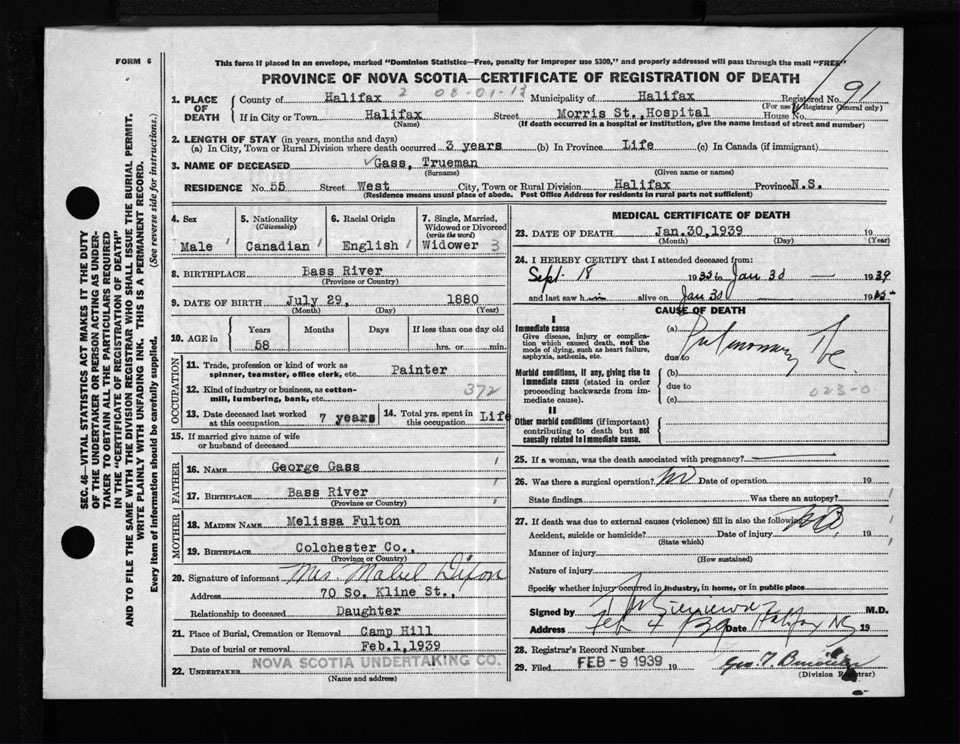 FORM 6
This form if placed in an envelope, marked "Dominion Statistics—Free, penalty for improper use $300," and properly addressed will pass through the mail "FREE"
PROVINCE OF NOVA SCOTIA—CERTIFICATE OF REGISTRATION OF DEATH
1. PLACE OF DEATH County of Halifax 2 02-01-13 Municipality of Halifax Registered No. 91
(For use of Registrar General only)
If in City or Town Halifax Street Morris St., Hospital House No.
(Name) (If death occurred in a hospital or institution, give the name instead of street and number)
2. LENGTH OF STAY (in years, months and days)
(a) In City, Town or Rural Division where death occurred 3 years (b) In Province Life (c) In Canada (if immigrant)
3. NAME OF DECEASED Gass, Trueman
(Surname) (Given name or names)
RESIDENCE No. 55 Street West City, Town or Rural Division Halifax Province N.S.
(Residence means usual place of abode. Post Office Address for residents in rural parts not sufficient)
4. Sex Male
5. Nationality (Citizenship) Canadian
6. Racial Origin English
7. Single, Married, Widowed or Divorced (write the word) Widower 3
8. BIRTHPLACE Bass River
(Province or Country)
9. DATE OF BIRTH July 29, 1880
(Month) (Day) (Year)
10. AGE in Years Months Days If less than one day old
58 hrs. or min.
OCCUPATION
11. Trade, profession or kind of work as spinner, teamster, office clerk, etc. Painter
12. Kind of industry or business, as cotton-mill, lumbering, bank, etc. 372
13. Date deceased last worked at this occupation 7 years
14. Total yrs. spent in this occupation Life
15. If married give name of wife or husband of deceased
FATHER
16. NAME George Gass
17. BIRTHPLACE Bass River
(Province or Country)
MOTHER
18. MAIDEN NAME Melissa Fulton
19. BIRTHPLACE Colchester Co.,
(Province or Country)
20. Signature of informant Mrs. Mabel Dixon
Address 70 So. Kline St.,
Relationship to deceased Daughter
21. Place of Burial, Cremation or Removal Camp Hill
Date of burial or removal Feb.1,1939
22. UNDERTAKER NOVA SCOTIA UNDERTAKING CO.
(Name and address)
MEDICAL CERTIFICATE OF DEATH
23. DATE OF DEATH Jan.30,1939 19
(Month) (Day) (Year)
24. I HEREBY CERTIFY that I attended deceased from:
Sept 18 19 to Jan 30 — 1939
and last saw him alive on Jan 30 19
CAUSE OF DEATH
I
Immediate cause
Give disease, injury or complication which caused death, not the mode of dying, such as heart failure, asphyxia, asthenia, etc.
(a) Pulmonary Tbc
due to
Morbid conditions, if any, giving rise to immediate cause (stated in order proceeding backwards from immediate cause).
(b)
due to
(c) 023-0
II
Other morbid conditions (if important) contributing to death but not causally related to immediate cause.
25. If a woman, was the death associated with pregnancy?
26. Was there a surgical operation? no Date of operation 19
State findings Was there an autopsy?
27. If death was due to external causes (violence) fill in also the following:
Accident, suicide or homicide? Date of injury 19
(State which)
Manner of injury
(How sustained)
Nature of injury
Specify whether injury occurred in industry, in home, or in public place
Signed by M.D.
Address Feb 4 /39 Date Halifax NS 19
28. Registrar's Record Number
29. Filed FEB - 9 1939 19
(Division Registrar)
SEC. 46—VITAL STATISTICS ACT MAKES IT THE DUTY
OF THE UNDERTAKER OR PERSON ACTING AS UNDER-
TAKER TO OBTAIN ALL THE PARTICULARS REQUIRED
IN THE "CERTIFICATE OF REGISTRATION OF DEATH"
AND TO FILE THE SAME WITH THE DIVISION REGISTRAR WHO SHALL ISSUE THE BURIAL PERMIT.
WRITE PLAINLY WITH UNFADING INK. THIS IS A PERMANENT RECORD.
Every item of information should be carefully supplied. (See reverse side for instructions.)